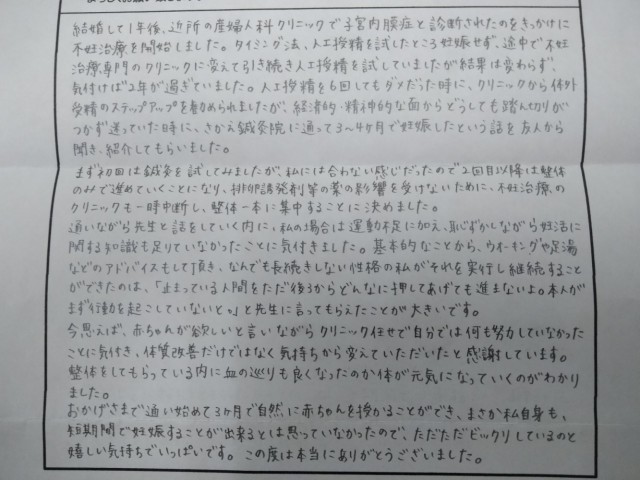 結婚して1年後、近所の産婦人科クリニックで子宮内膜症と診断されたのをきっかけに
不妊治療を開始しました。タイミング法、人工授精を試したところ妊娠せず、途中で不妊
治療専門のクリニックに変えて引き続き人工授精を試していましたが結果は変わらず、
気付けば2年が過ぎていました。人工授精を6回してもダメだった時に、クリニックから体外
受精のステップアップを勧められましたが、経済的・精神的な面からどうしても踏ん切りが
つかず迷っていた時に、さかえ鍼灸院に通って3〜4ヶ月で妊娠したという話を友人から
聞き、紹介してもらいました。
まず初回は鍼灸を試してみましたが、私には合わない感じだったので2回目以降は整体
のみで進めていくことになり、排卵誘発剤等の薬の影響を受けないために、不妊治療の
クリニックも一時中断し、整体一本に集中することに決めました。
通いながら先生と話をしていく内に、私の場合は運動不足に加え、恥ずかしながら妊活に
関する知識も足りていなかったことに気付きました。基本的なことから、ウォーキングや足湯
などのアドバイスもして頂き、なんでも長続きしない性格の私がそれを実行し継続すること
ができたのは、「止まっている人間をただ後ろからどんなに押してあげても進まないよ。本人が
まず行動を起こしていないと。」と先生に言ってもらえたことが大きいです。
今思えば、赤ちゃんが欲しいと言いながらクリニック任せで自分では何も努力していなかった
ことに気付き、体質改善だけではなく気持ちから変えていただいたと感謝しています。
整体をしてもらっている内に血の巡りも良くなったのか体が元気になっていくのがわかり
ました。
おかげさまで通い始めて3ヶ月で自然に赤ちゃんを授かることができ、まさか私自身も、
短期間で妊娠することが出来るとは思っていなかったので、ただただビックリしているのと
嬉しい気持ちでいっぱいです。この度は本当にありがとうございました。